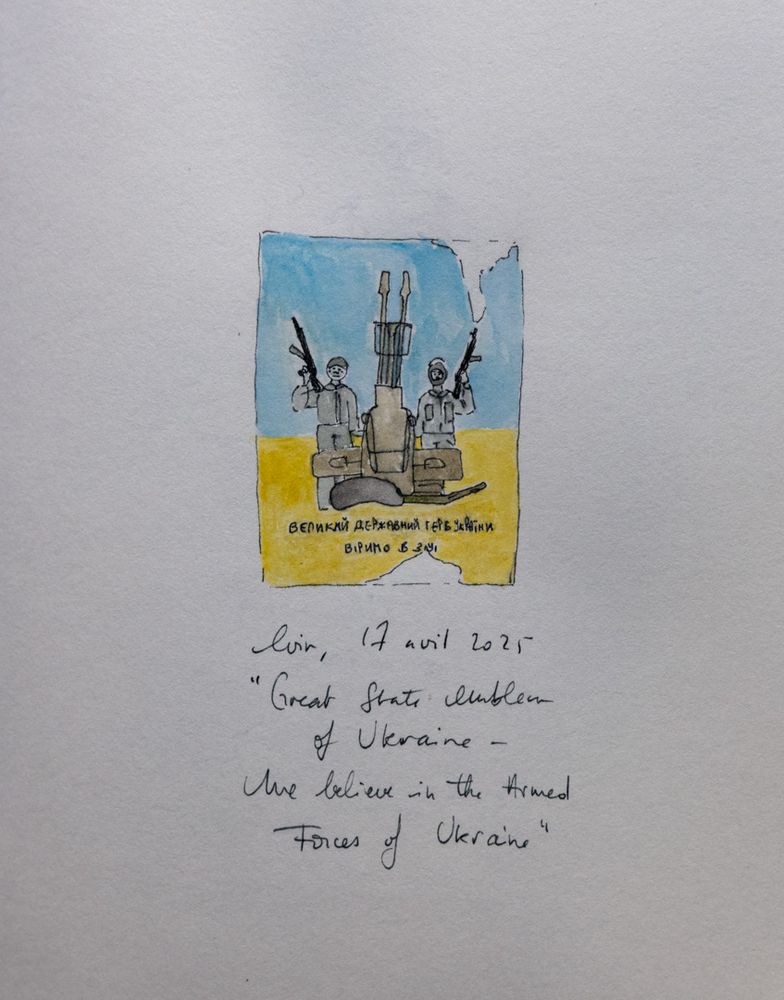 ВЕЛИКИЙ ДЕРЖАВНИЙ ГЕРБ УКРАЇНИ
ВІРИМО В ЗСУ
Lviv, 17 avril 2025
"Great State Emblem
of Ukraine –
We believe in the Armed
Forces of Ukraine"